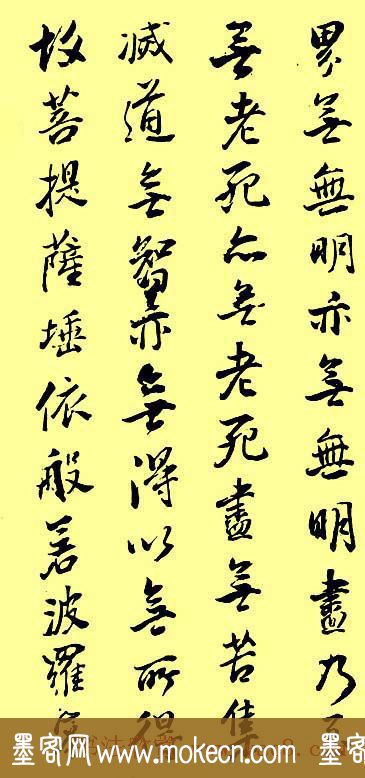 界無無明亦無無明盡乃
無老死亦無老死盡無苦集
滅道無智亦無得以無所得
故菩提薩埵依般若波羅
墨客网 www.mokecn.com 墨客网